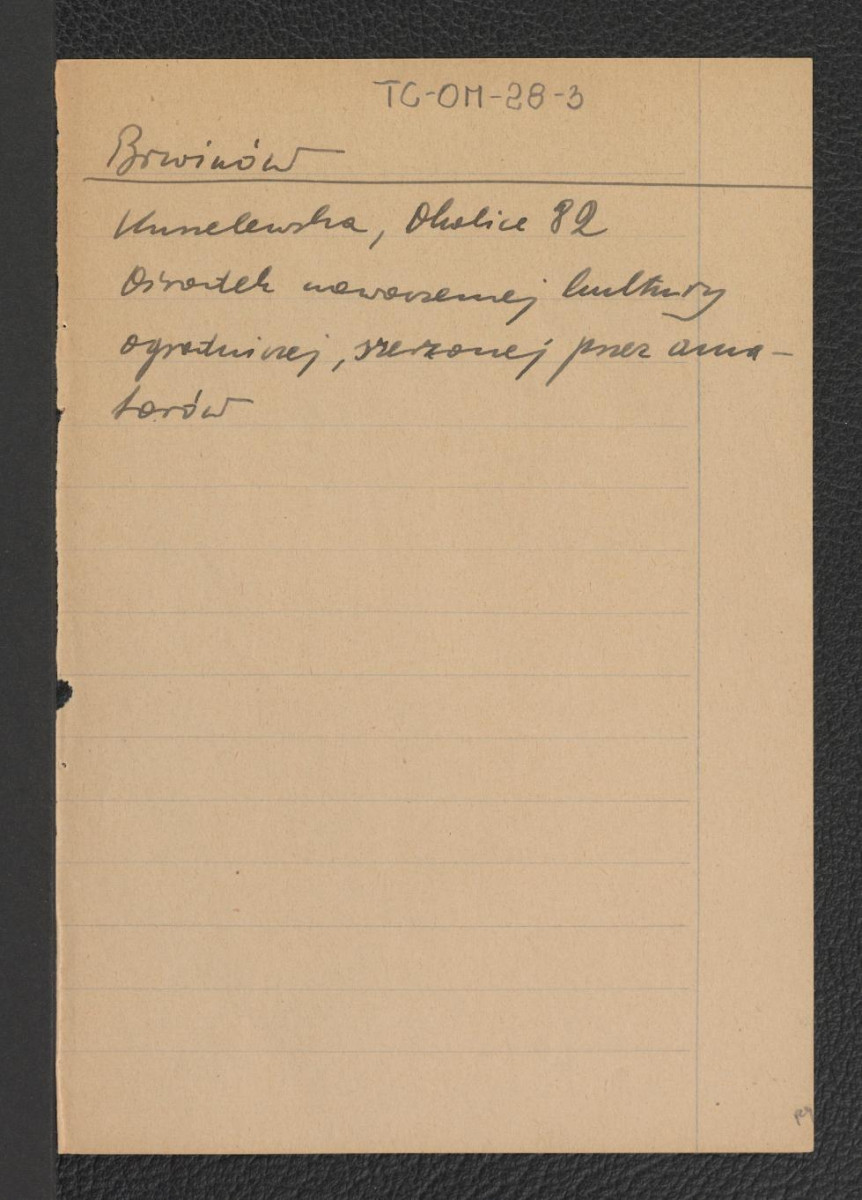 TC-OM-28-3
Brwinów
Kunelewska, Okolice 82
Ośrodek nowoczesnej kultury
ogrodniczej, szerzonej przez ama-
torów